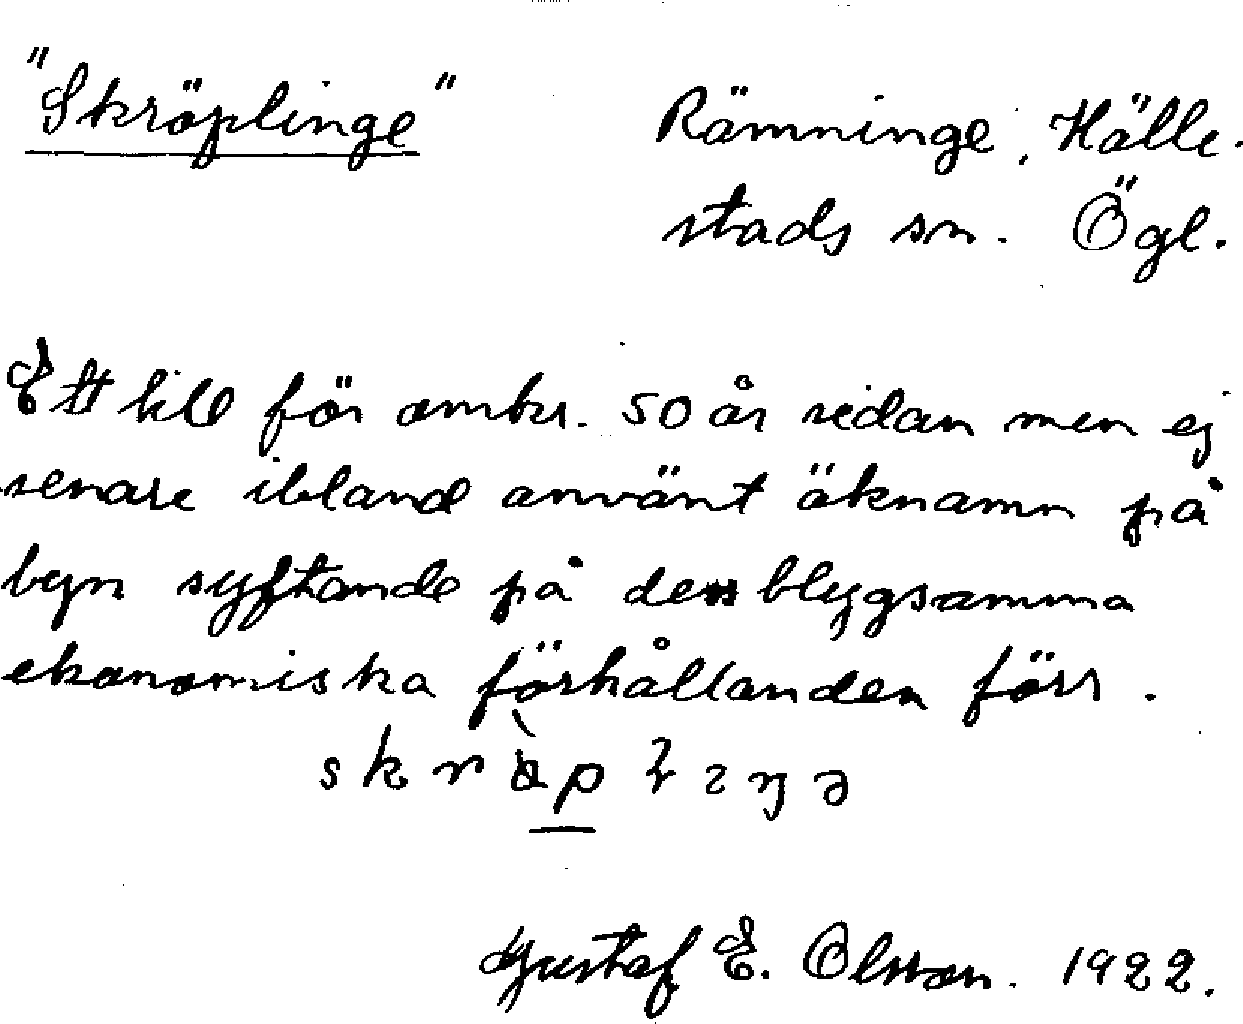 "Skröplinge" Rämninge, Hälle-
stads sn. Ögl.
Ett till för omkr. 50 år sedan men ej
senare ibland använt öknamn på
byn syftande på dess blygsamma
ekonomiska förhållanden förr.
Gustaf E. Olsson. 1922.